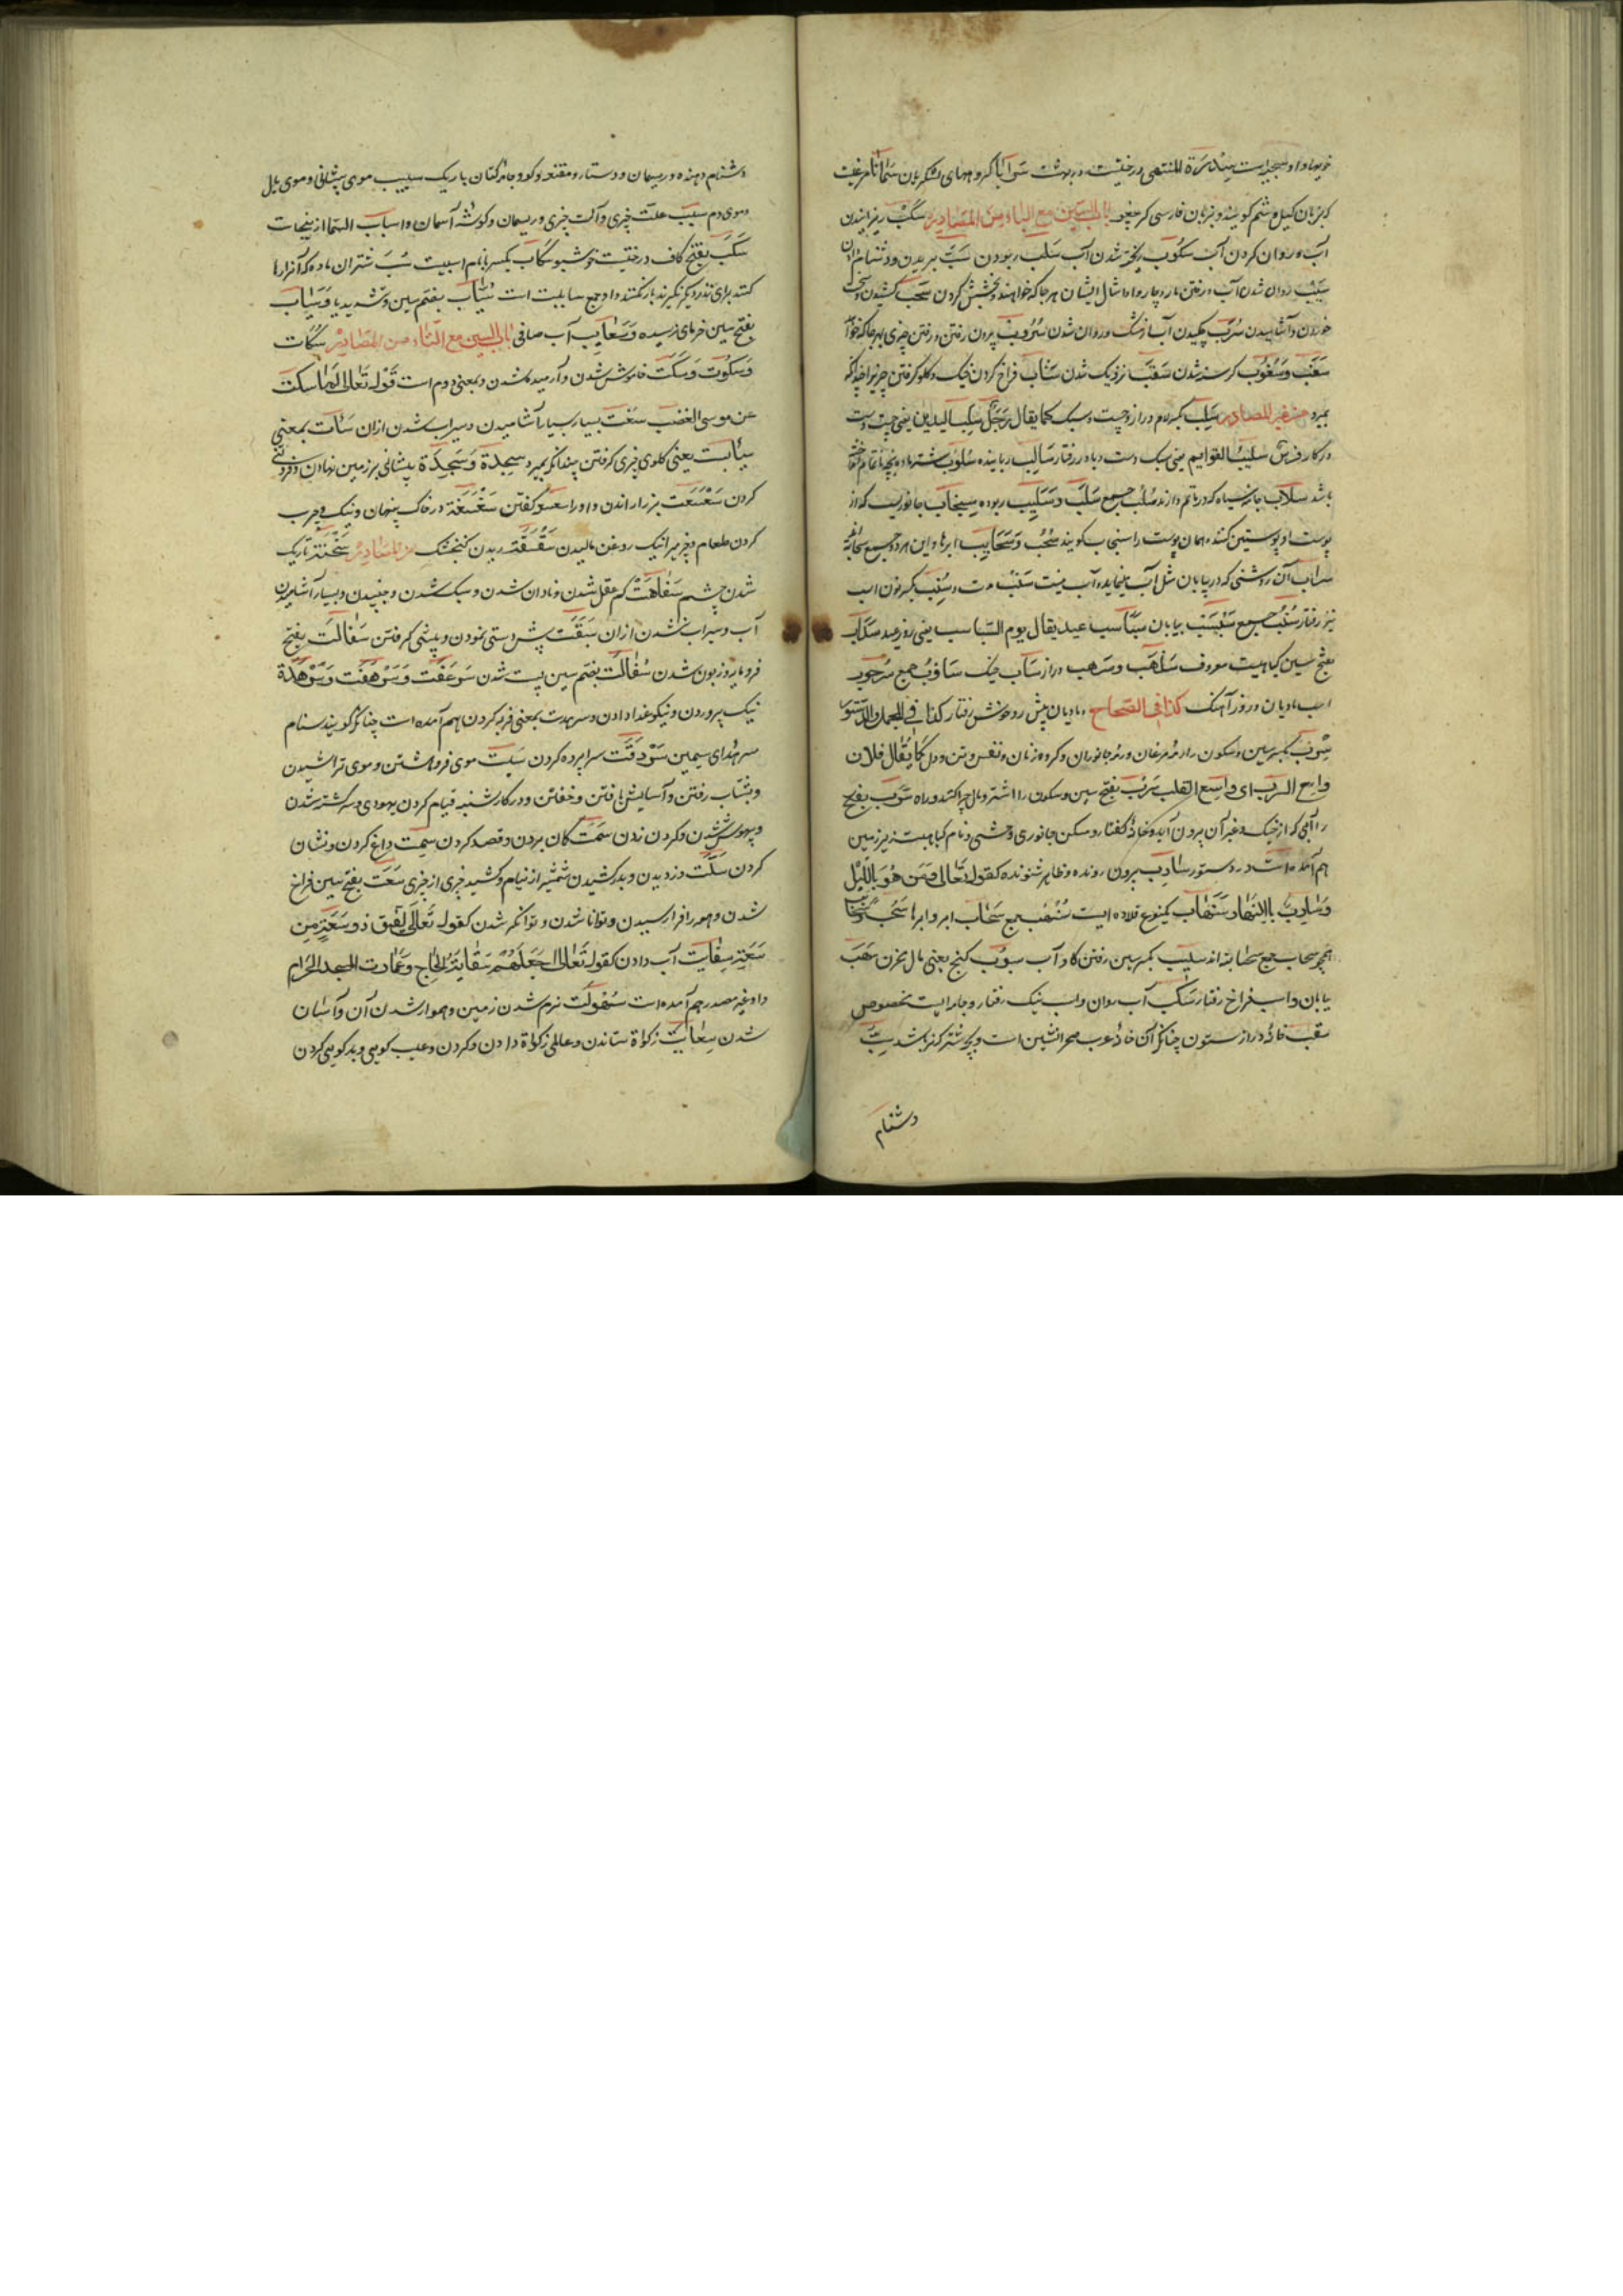 خویها واو سجیه است سدرة المنتهی درختیست در بهشت سرایا گروههای لشکریان
که بزبان گیل و شم گویند و بزبان فارسی باب السین مع الباء من المصادر سکب ریزانیدن
آب و روان کردن آب سکوب ریخته شدن آب سلب ربودن سب بریدن و دشنام دادن
سیب روان شدن آب و رفتن مار و چاروا و امثال ایشان هر جا که خواهند و بخشش کردن سحب کشیدن و سخت
خوردن و آشامیدن سرب چکیدن آب از مشک و روان شدن سروب بیرون رفتن و رفتن چیزی بهر جا که خواهد
سغب و سغوب گرسنه شدن سقب نزدیک شدن سأب فراخ کردن خیک و گلو گرفتن چیزیرا چندانکه
بمیرد من غیر المصادر سلب بکسر لام دراز و چست و سبک کما یقال رجل سلب الیدین یعنی چست دست
در کار فرس سلب القوایم یعنی سبک دست و پا در رفتار سالب رباینده سلوب شتر ماده بچه ناتمام انداخته
باشد سلاب جامه سیاه که در ماتم دارند سلب جمع سلب و سلیب ربوده سنجاب جانوریست که از
پوست او پوستین کنند و همان پوست را سنجاب گویند سحب و سحایب ابرها و این هر دو جمع سحابه
سراب آن روشنی که در بیابان مثل آب مینماید و آب نیست سنب مدت و سنب بکسر نون اسب
تیز رفتار سنب جمع سبسب بیابان سباسب عید یقال یوم السباسب یعنی روز عید
بفتح سین گیاهیست معروف سلهب و سرهب دراز سأب خیک
اسب مادیان دور آهنگ کذا فی الصحاح مادیان پیش رو خوش رفتار کذا فی المجمل والدستور
سرب بکسر سین و سکون را رمه مرغان و رمه جانوران و گروه زنان و نفس و تن و دل کما یقال فلان
واسع السرب ای واسع القلب سرب بفتح سین و سکون را اشتر و مال چرا کننده و راه سرب بفتح
را آبی که از خیک و غیر آن بیرون آید و خانه کفتار و مسکن جانوری وحشی و نام گیاهیست زیر زمین
هم آمده است در دستور سارب بیرون رونده و ظاهر شنونده کقوله تعالی و من هو باللیل
وسارب بالنهار سخاب یکنوع قلاده ایست سخب جمع سحاب ابر و ابرها سحب
جمع سحابه اند سیب بکسر سین رفتن گاه آب سیوب گنج یعنی مال مخزن سهب
بیابان و اسب فراخ رفتار سکب آب روان و اسب نیک رفتار و جامه ایست مخصوص
سقب خانه دراز ستون چنانکه آن خانه عرب صحرا نشین است و بچه شتر که نر باشد سب
دشنام
دشنام دهنده و ریسمان و دستار و مقنعه و کود و جامه کتان باریک سبیب موی پیشانی و موی یال
و موی دم سبب علت چیزی و آلت چیزی و ریسمان و گوشه آسمان و اسباب السما ازینجاست
سکب بفتح کاف درختیست خوشبو سکاب بکسر با نام اسبیست سیب شتران ماده که آنرا رها
کنند برای نذر دیگر نگیرند بار نکنند و او جمع سایبست است سیاب بضم سین و تشدید یا و سیاب
بفتح سین خرمای نرسیده و سعابیب آب صافی باب السین مع التاء من المصادر سکات
و سکوت و سکت خاموش شدن و آرمیده شدن و بمعنی دوم است قوله تعالی لما سکت
عن موسی الغضب سفت بسیار بسیار آشامیدن و سیراب نشدن از ان سأت بمعنی
سأبست یعنی گلوی چیزی گرفتن چندانکه بمیرد سجدة و سجدة پیشانی بر زمین نهادن و فروتنی
کردن سعسعت بز را راندن و او را سع سع گفتن سغسغة در خاک پنهان و نیک و چرب
کردن طعام و چیزیرا نیک روغن مالیدن سقسقة ریدن گنجشک من المصادر سخنة تاریک
شدن چشم سفاهت کم عقل شدن و نادان شدن و سبک شدن و جنبیدن و بسیار آشامیدن
آب و سیراب نشدن از ان سبقت پیش دستی نمودن و پیشی گرفتن سفالت بفتح
فرومایه و زبون شدن سفالت بضم سین پست شدن سرعفت و سرهفت و سرهدة
نیک پروردن و نیکو غذا دادن و سرهدت بمعنی فربه کردن هم آمده است چنانکه گویند سنام
سرهدای سمین سردقت سراپرده کردن سبت موی فروهشتن و موی تراشیدن
و بشتاب رفتن و آسایش یافتن و خفتن و در کار شنبه قیام کردن یهودی و سرگشته شدن
و بیهوش شدن و گردن زدن سمت گمان بردن و قصد کردن سمت داغ کردن و نشان
کردن سلت دزدیدن و برکشیدن شمشیر از نیام و کشیدن چیزی از چیزی سعت بفتح سین فراخ
شدن و همه را فرا رسیدن و توانا شدن و توانگر شدن کقوله تعالی لینفق ذو سعة من
سعته سقایت آب دادن کقوله تعالی اجعلتم سقایة الحاج و عمارت المسجد الحرام
و او غیر مصدر هم آمده است سهولت نرم شدن زمین و هموار شدن آن و آسان
شدن سعایت زکوة ستاندن و عاملی زکوة دادن و کردن و عیب گویی و بدگویی کردن